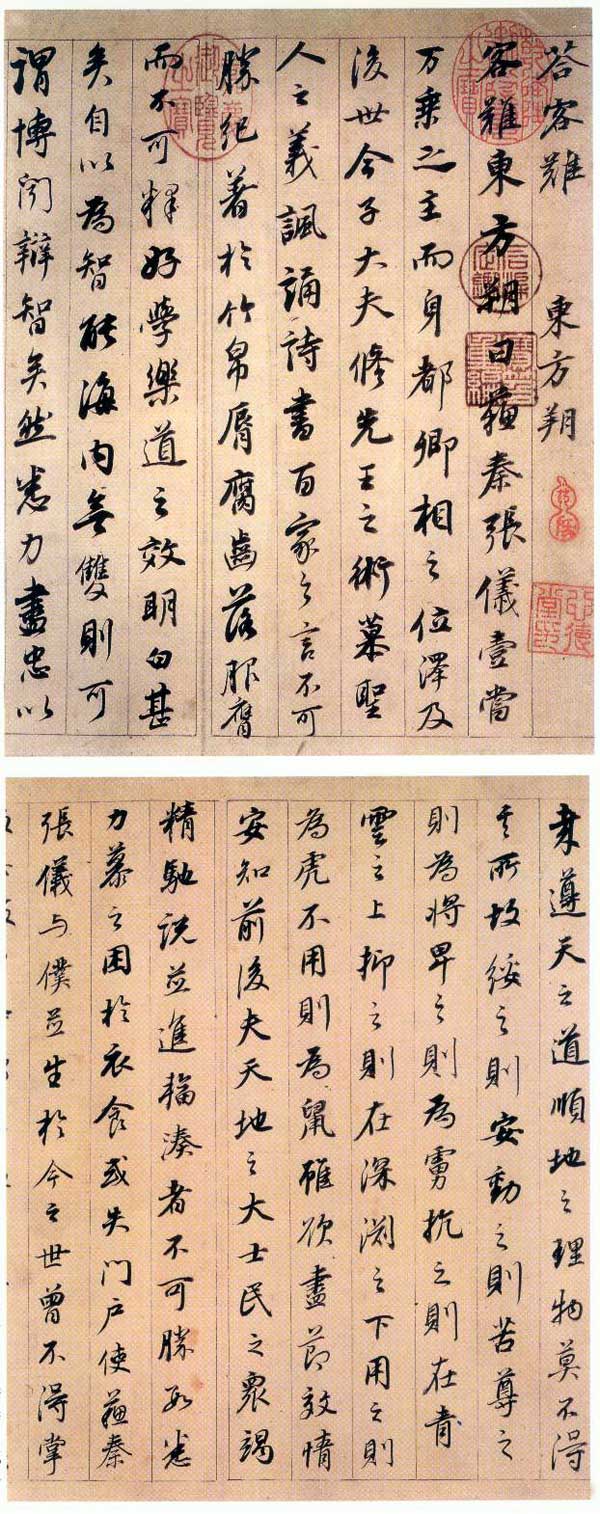 答客難 東方朔
客難東方朔曰蘇秦張儀壹當
万乘之主而身都卿相之位澤及
後世今子大夫修先王之術慕聖
人之義諷誦詩書百家之言不可
勝紀著於竹帛脣腐齒落服膺
而不可釋好學樂道之效明白甚
矣自以為智能海内無雙則可
謂博聞辯智矣然悉力盡忠以
遵天之道順地之理物莫不得
其所故綏之則安動之則苦尊之
則為將卑之則為虜抗之則在青
雲之上抑之則在深淵之下用之則
為虎不用則為鼠雖欲盡節效情
安知前後夫天地之大士民之衆竭
精馳説並進輻湊者不可勝數悉
力慕之困於衣食或失門户使蘇秦
張儀与僕並生於今之世曾不得掌